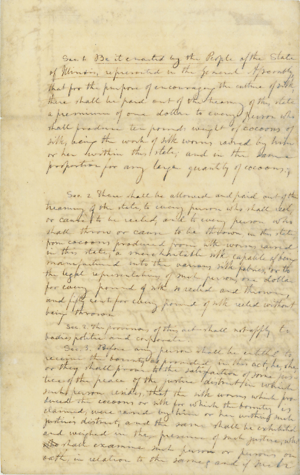 Sec 1. Be it enacted by the People of the State
of Illinois, represented in the General Assembly
that for the purpose of encouraging the culture of silk
there shall be paid out of the treasury of the state
a premium of one dollar to every person who
shall produce ten pounds weight of cocoons of
silk, being the work of silk worms raised by him
or her within this state, and in the same
proportion for any large quantity of cocoons;
Sec 2. There shall be allowed and paid out of the
treasury of the state to every person who shall reel
or cause to be reeled, and to every person who
shall throw or cause to be thrown in the state
from cocoons produced from silk worms raised
in this state, a merchantable silk capable of being
manufactured into the various silk fabrics, or to
the legal representatives of such person, one dollar
for every pound of silk so reeled and thrown,
and fifty cents for every pound of silk reeled without
being thrown
Sec The provisions of this act shall not apply to
bodies politic and corporate
Sec 3. Before person shall be entitled to
receive the bounty provided in this act, he, she
or they shall prove to the satisfaction of some jus-
tice of the peace of the justices district in which
such person resides, that the silk worms which pro-
duced the cocoons or silk for which the bounty is
claimed, were raised by him or her within such
justices district, and the same shall be exhibited
and weighed in the presence of such justice, who
shall examine such person or persons on
oath in relation to the same, and if such